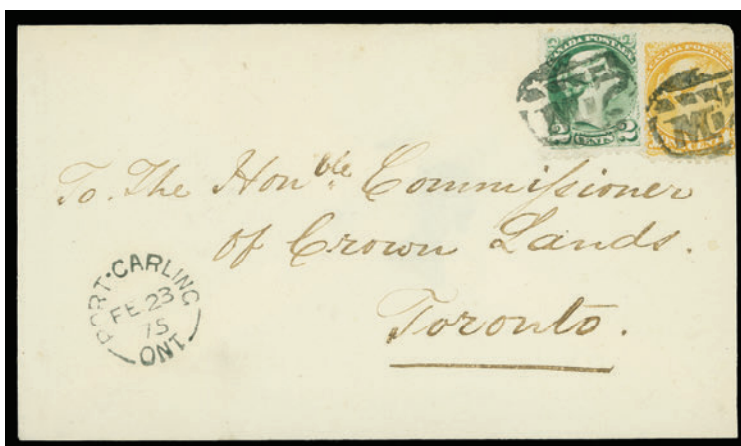 CANADA POSTAGE CANADA POSTAGE
2 CENTS 2
To. The Hon^ble. Commissioner
of Crown Lands.
Toronto.
PORT·CARLING
FE 23
75
ONT